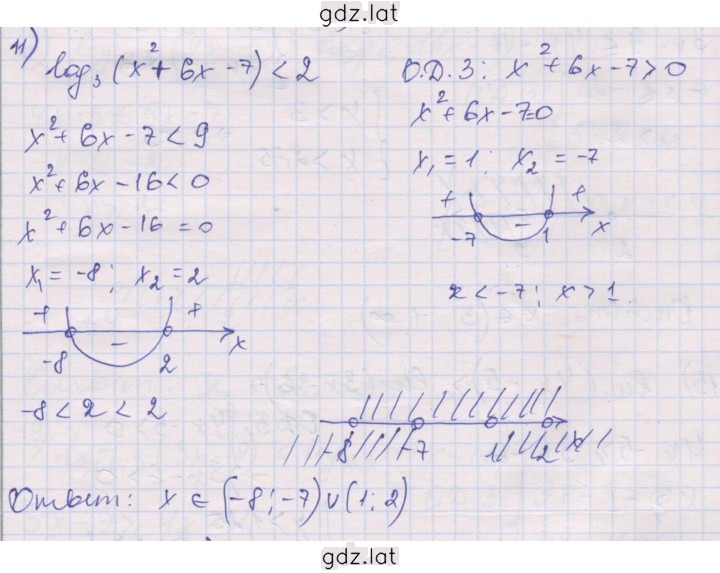 gdz.lat
11)
log₃(x²+6x-7)<2
x²+6x-7<9
x²+6x-16<0
x²+6x-16=0
x₁=-8; x₂=2
+ - +
-8 2 x
-8<x<2
О.Д.З: x²+6x-7>0
x²+6x-7=0
x₁=1; x₂=-7
+ - +
-7 1 x
x<-7; x>1
-8 -7 1 2 x
Ответ: x∈(-8;-7)∪(1;2)
gdz.lat